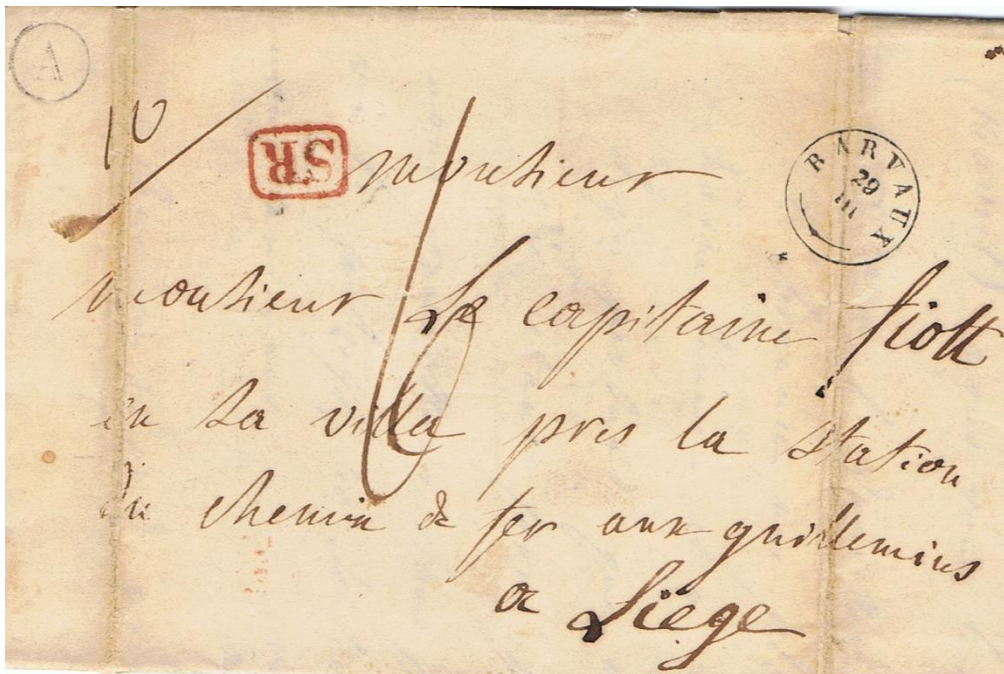 A
10
SR
BARVAUX
29
III
monsieur
monsieur Le capitaine fiott
en sa villa pres la station
du chemin de fer aux guillemins
a Liege